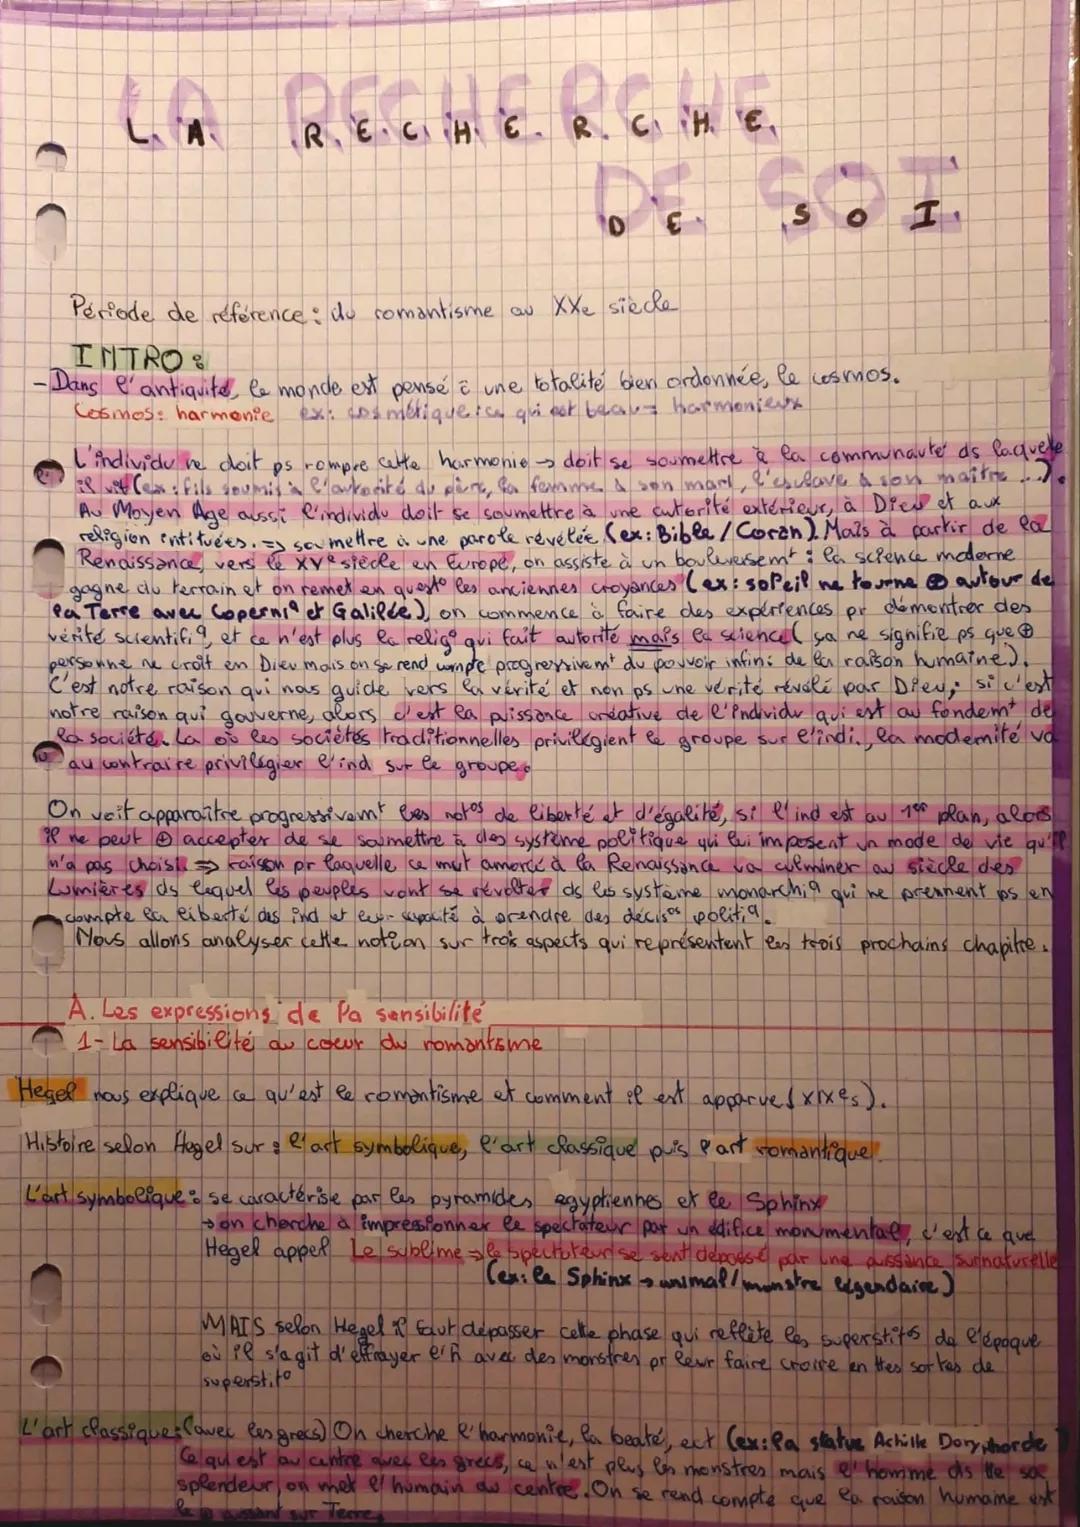 LA RECHERCHE
L.A. R.E.C.H.E.R.C.H.E.
DE SOI
D E. S O I.
Période de référence : du romantisme au XXe siècle
INTRO :
- Dans l'antiquité, le monde est pensé c̄ une totalité bien ordonnée, le cosmos.
Cosmos : harmonie ex : cosmétique : ce qui est beau = harmonieux
L'individu ne doit ps rompre cette harmonie → doit se soumettre à la communauté ds laquelle
il vit (ex : fils soumis à l'autorité du père, la femme à son mari, l'esclave à son maître ...).
Au Moyen Age aussi l'individu doit se soumettre à une autorité extérieur, à Dieu et aux
religion intituées. => soumettre à une parole révélée (ex : Bible / Coran). Mais à partir de la
Renaissance, vers le XVe siècle en Europe, on assiste à un bouleversemt : la science moderne
gagne du terrain et on remet en questo les anciennes croyances (ex : soleil ne tourne ⊕ autour de
la Terre avec Coperniq et Galilée), on commence à faire des expériences pr démontrer des
vérité scientifiq, et ce n'est plus la religo qui fait autorité mais la science (ça ne signifie ps que ⊕
personne ne croit en Dieu mais on se rend compte progressivemt du pouvoir infini de la raison humaine).
C'est notre raison qui nous guide vers la vérité et non ps une vérité révélé par Dieu, si c'est
notre raison qui gouverne, alors c'est la puissance créative de l'individu qui est au fondemt de
la société. La où les sociétés traditionnelles privilégient le groupe sur l'indi., la modernité va
au contraire privilégier l'ind sur le groupe.
On voit apparaître progressivemt les notos de liberté et d'égalité, si l'ind est au 1er plan, alors
il ne peut ⊕ accepter de se soumettre à des système politique qui lui imposent un mode de vie qu'il
n'a pas choisi => raison pr laquelle ce mut amorcé à la Renaissance va culminer au siècle des
Lumières ds lequel les peuples vont se révolter ds les système monarchiq qui ne prennent ps en
compte la liberté des ind et leur capacité à prendre des décisos politiq.
Nous allons analyser cette notion sur trois aspects qui représentent les trois prochains chapitre.
A. Les expressions de la sensibilité
1- La sensibilité au coeur du romantisme
Hegel nous explique ce qu'est le romantisme et comment il est apparue (XIXes).
Histoire selon Hegel sur : l'art symbolique, l'art classique puis l'art romantique.
L'art symbolique : se caractérise par les pyramides egyptiennes et le Sphinx
→ on cherche à impressionner le spectateur par un édifice monumental, c'est ce que
Hegel appel Le sublime → le spectateur se sent dépassé par une puissance surnaturelle
(ex : le Sphinx → animal / monstre légendaire)
MAIS selon Hegel il faut dépasser cette phase qui reflète les superstitos de l'époque
où il s'agit d'effrayer l'h avec des monstres pr leur faire croire en ttes sortes de
superstito
L'art classique : (avec les grecs) On cherche l'harmonie, la beaté, ect (ex : la statue Achille Doryphorde
Ce qui est au centre avec les grecs, ce n'est plus les monstres mais l'homme ds tte sa
splendeur, on met l'humain au centre. On se rend compte que la raison humaine est
le ⊕ puissant sur Terre.